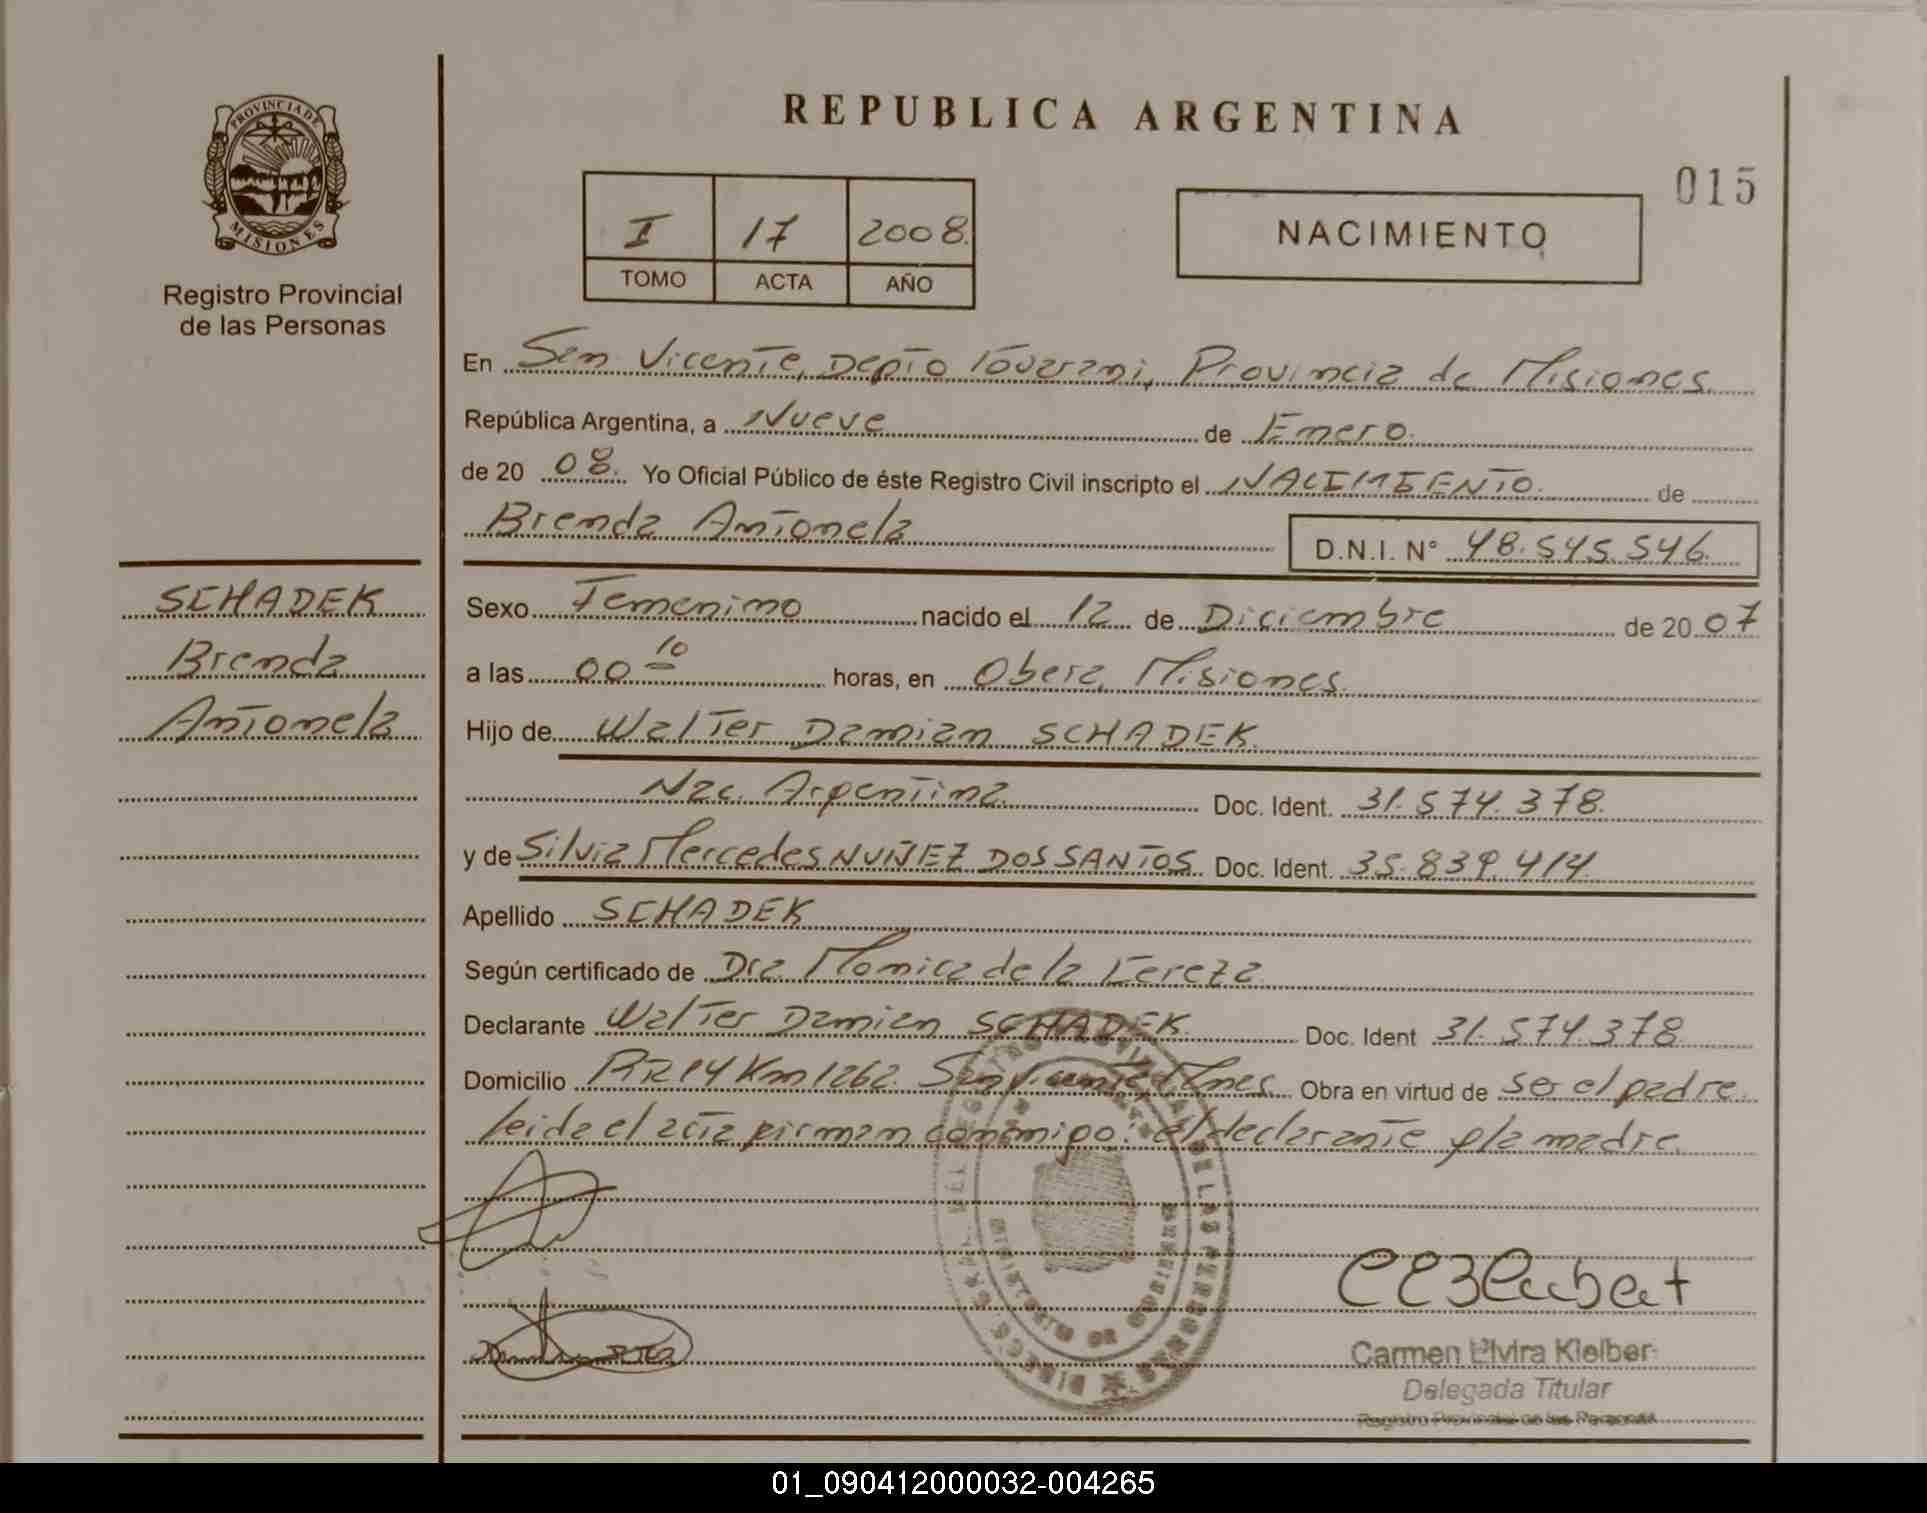 PROVINCIA DE
MISIONES
Registro Provincial
de las Personas
SCHADEK
Brenda
Antonela
REPUBLICA ARGENTINA
015
I 17 2008.
TOMO ACTA AÑO
NACIMIENTO
En San Vicente, Depto Guarani, Provincia de Misiones.
República Argentina, a Nueve de Enero.
de 20 08. Yo Oficial Público de éste Registro Civil inscripto el NACIMIENTO. de
Brenda Antonela D.N.I. N° 48.545.546.
Sexo Femenino nacido el 12 de Diciembre de 20 07
a las 00 10 horas, en Obera, Misiones.
Hijo de Walter Damian SCHADEK.
Nac. Argentina. Doc. Ident. 31.574.378.
y de Silvia Mercedes NUÑEZ DOS SANTOS. Doc. Ident. 35.839.414.
Apellido SCHADEK
Según certificado de Dra. Monica de la
Declarante Walter Damian SCHADEK. Doc. Ident 31.574.378
Domicilio RR14 Km 1262. San Vicente, Mnes. Obra en virtud de ser el padre.
leida el acta firman conmigo: el declarante y la madre.
Carmen Elvira Kleiber
Delegada Titular
Registro Provincial de las Personas
01_090412000032-004265